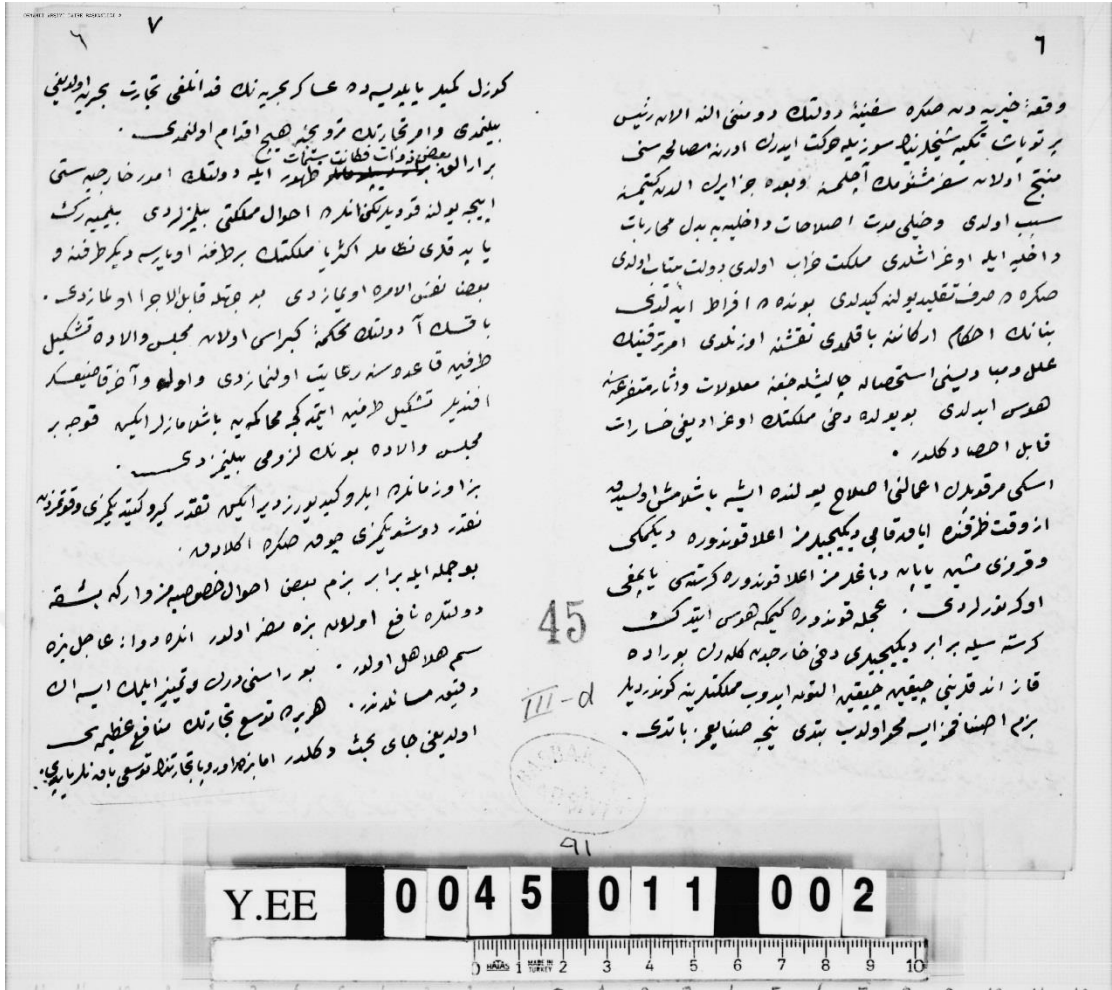 ٦
وقعهٔ خیریه دن صکره سفینهٔ دولتك دومننی النه الان رئیس
پرتو پاشا تکیه شیخلرینك سوزیله حرکت ایدرك ادرنه مصالحه سنی
منتج اولان سفر مشئومك آچلمسنه و بعده جزایرك الدن کیتمسنه
سبب اولدی وخیلی مدت اصلاحات داخلیه یه بدل محاربات
داخلیه ایله اوغراشلدی مملکت خراب اولدی دولت بیتاب اولدی
صکره ده صرف تقلید یولنه کیدلدی بونده ده افراط ایدلدی
بنانك احکام ارکاننه باقلمدی نقشنه اوزنلدی امر ترقینك
علل ومبادیسنی استحصاله چالیشلمقسزین معلولات واثار متفرعه سنه
هوس ایدلدی بو یولده دخی مملکتك اوغرادیغی خسارات
قابل احصا دکلدر .
اسکی مرقوبلرك اعمالنی اصلاح یولنده ایشه باشلامش اولسیدق
از وقت ظرفنده ایاق قابی دیکیجیلرمز اعلا قوندوره دیکمکی
وقروزی مشین یاپان دباغلرمز اعلا قوندوره کرسته سی یاپمغی
اوکرنورلردی . عجله قوندوره کیمکه هوس ایتدك
کرسته سیله برابر دیکیجیلری دخی خارجدن کله رك بوراده
قازاندقلرینی چیقین چیقین التون ایدوب مملکتلرینه کوندردیلر
بزم اصنافمز ایسه محو اولدی بتدی نیجه صنایعمز باتدی .
٧
٦
کوزل کمیلر یاپلدیسه ده عساکر بحریه نك قدانلغی تجارت بحریه اولدیغی
بیلنمدی وامر تجارتك ترویجنه هیچ اقدام اولنمدی .
بر ارالق بعض ذوات فطانت سمات ظهور ایله دولتك امور خارجیه سنی
اییجه یولنه قویدیلر لکن انلر ده احوال مملکتی بیلمزلردی بیلمیه رك
یاپدقلری نظاملر اکثریا مملکتك بر طرفنه اویارسه دیکر طرفنه و
بعضا نفس الامره اویمازدی بو جهتله قابل الاجرا اولمازدی .
باقسك آ دولتك محکمهٔ کبراسی اولان مجلس والاده تشکیل
طرفین قاعده سنه رعایت اولنمازدی و اوله وآخر قاضیعسکر
افندیلر تشکیل طرفین ایتمدکجه محاکمه یه باشلامازلر ایکن قوجه بر
مجلس والاده بونك لزومی بیلنمزدی .
بز او زمانلرده ایلرو کیدیورز دیر ایکن نقدر کیرو کیتدیکمزی وقوتمزدن
نقدر دوشدیکمزی چوق صکره اکلادق .
بو جمله ایله برابر بزم بعض احوال خصوصیه مز واردر که بشقه
دولتلره نافع اولان بزه مضر اولور انلره دواء عاجل بزه
سم هلاهل اولور . بوراسنی درك وتمییز ایلمك ایسه اك
دقیق مسائلدندر . هر یرده توسع تجارتك منافع عظیمه سی
اولدیغی جای بحث دکلدر اما بزده اوروپا تجارتنك توسعی باق نلر یاپدی :
45
III-d
91
Y.EE 0045 011 002
0 1 2 3 4 5 6 7 8 9 10
HATAŞ MADE IN TURKEY